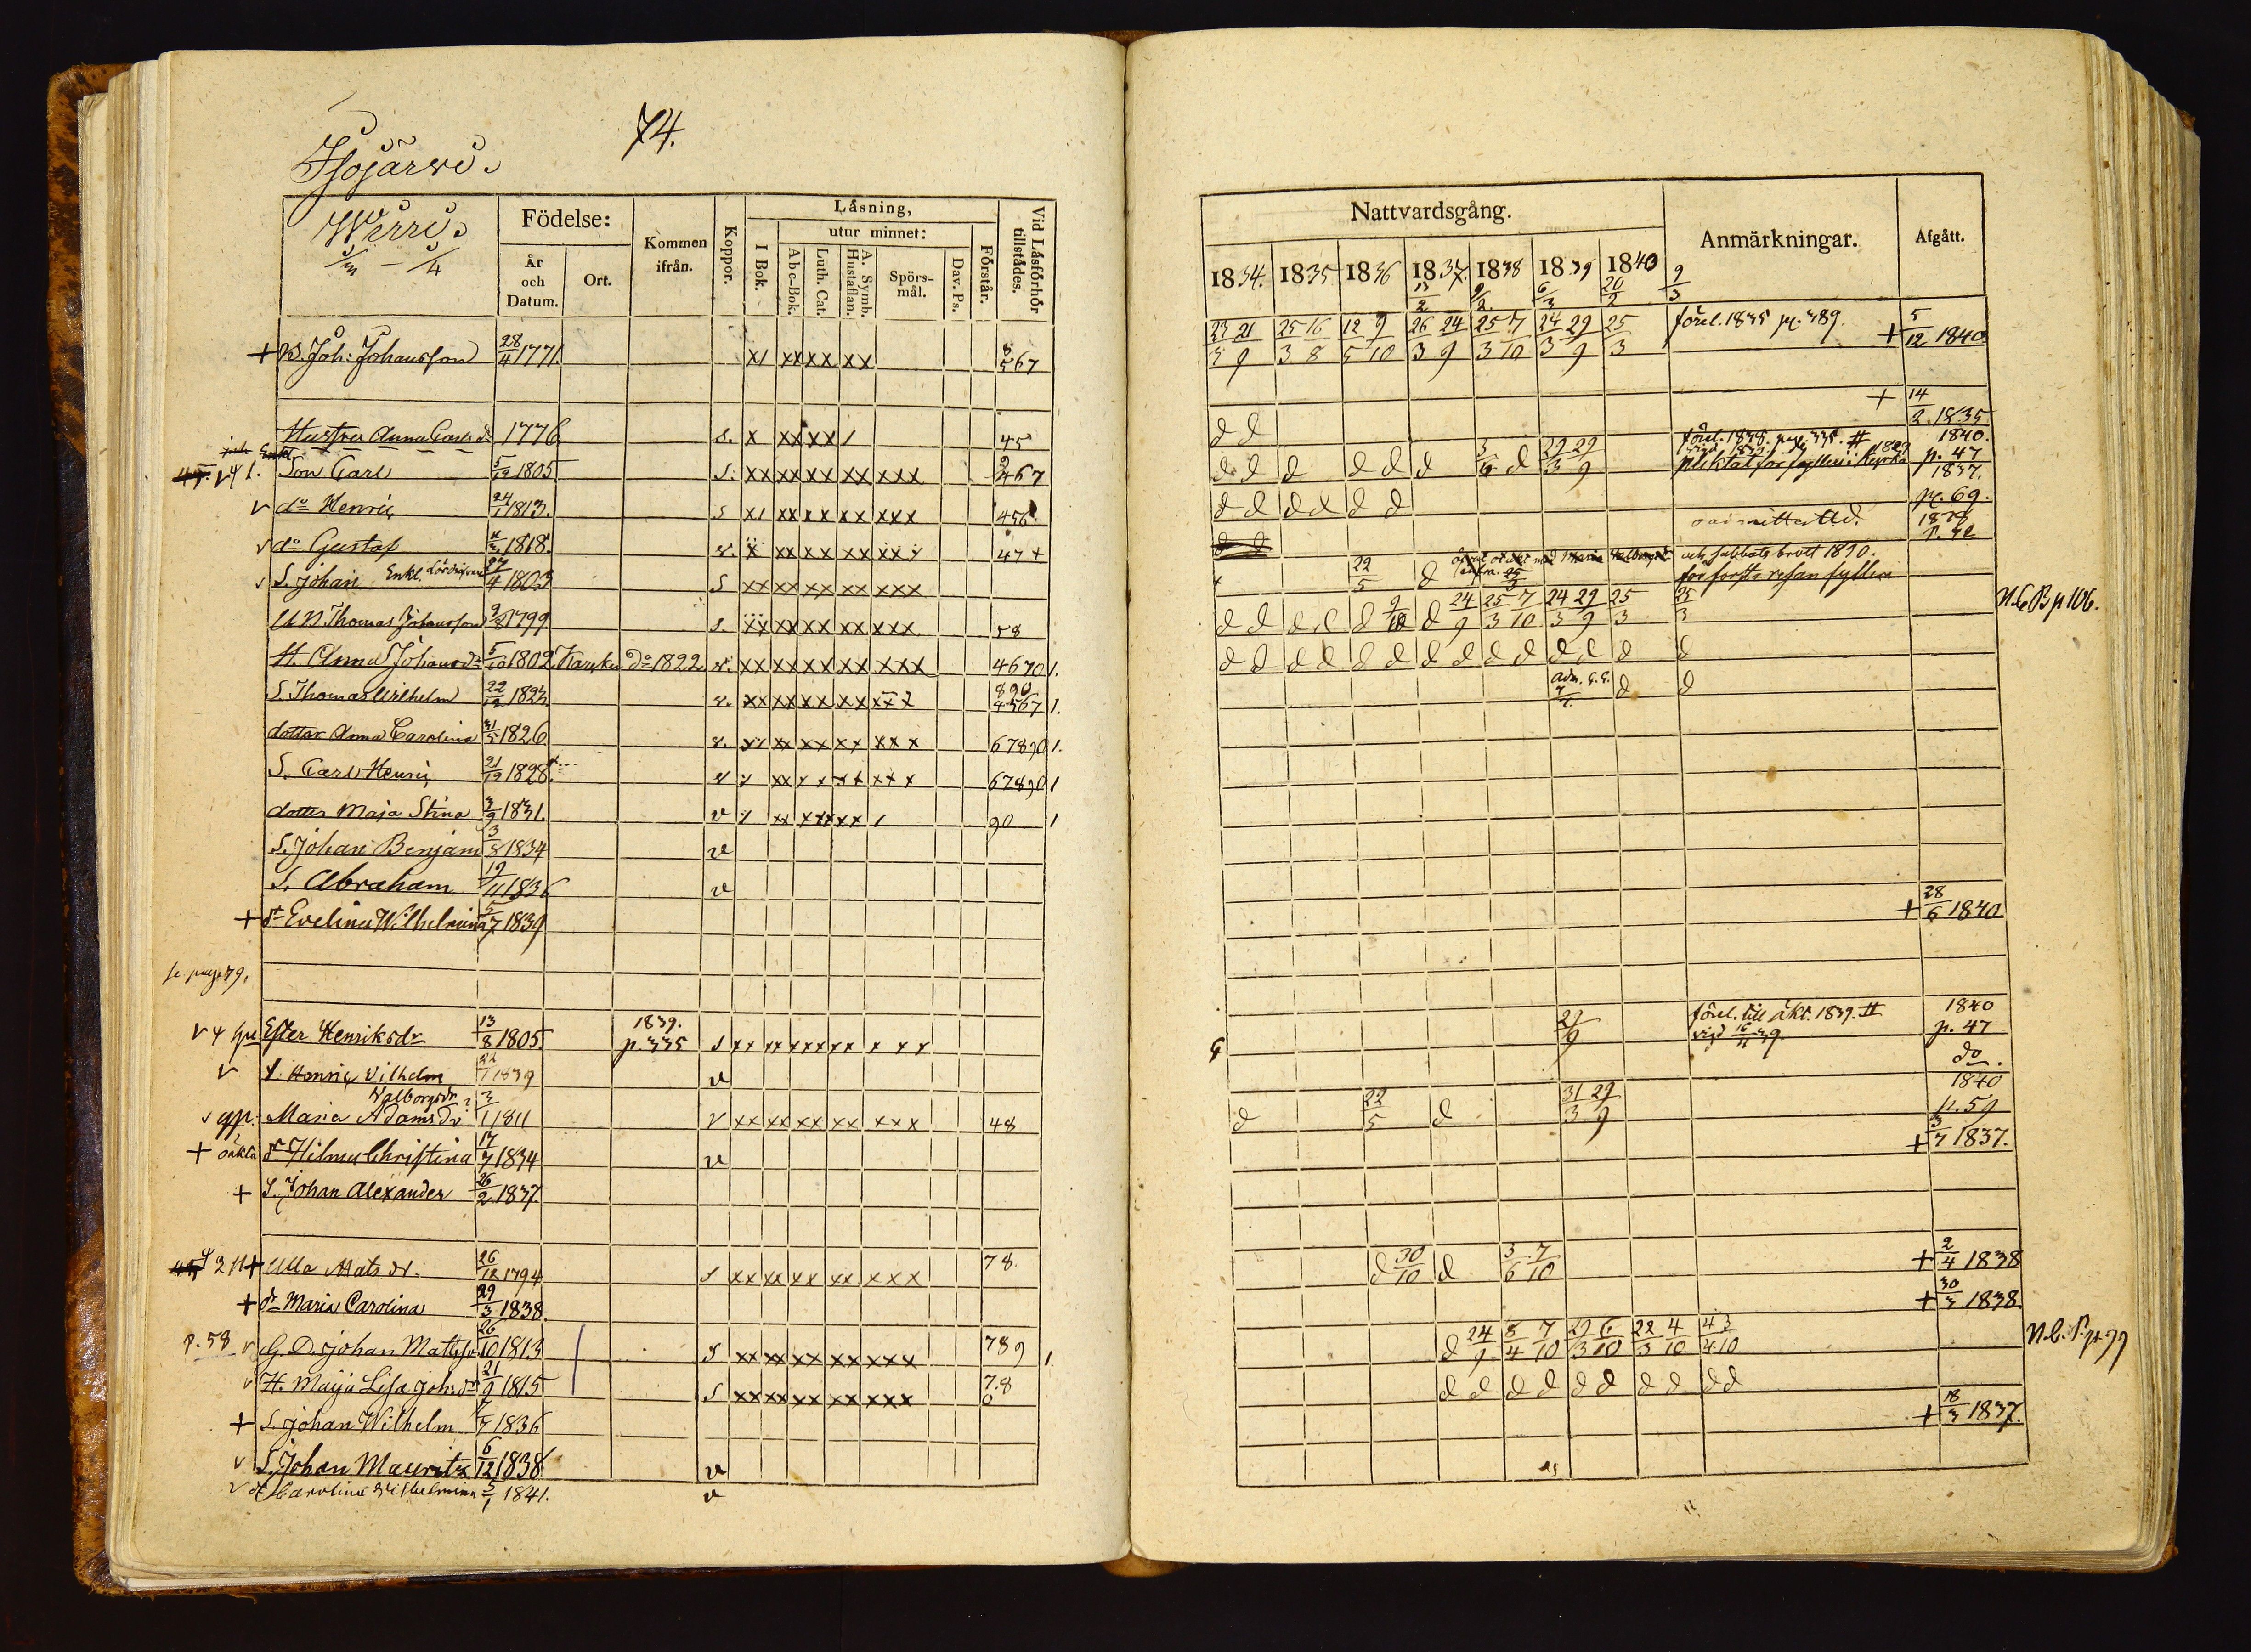 74.
Isojärvi.
Födelse:
Kommen ifrån.
Koppor.
Läsning,
I Bok.
utur minnet:
Abc-Bok.
Luth. Cat.
A. Symb. Hustaflan.
Spörsmål.
Dav. Ps.
Förstår.
Vid Läsförhör tillstädes.
År och Datum.
Ort.
+ Joh: Johansson 28/4 1771. x1 xx xx xx 567
Hustru Anna Carlsdr 1776 s. x xx xx 1 45
Enkl.
v 41. Son Carl 5/12 1805 s. xx xx xx xx xxx 467
v do Henric 24/1 1813. s x1 xx xx xx xxx 456
v do Gustaf 1818. xx xx xx 47+
v S. Johan Enkl. 27/4 1803 s xx xx xx xx xxx
Thomas Johansson 9/8 1799 s. xx xx xx xx xxx 58
H. Anna Johansdr 5/10 1802 do 1822 xx xx xx xx xxx 4670 1.
S. Thomas Wilhelm 22/12 1823. xx xx xx xx 890 4567 1.
dotter Anna Carolina 31/5 1826 xx xx xx xxx 67890 1.
S. Carl Henric 21/12 1828. xx xx xx xxx 67890 1
dotter Maja Stina 3/9 1831. v xx xx xx 1 90 1
S. Johan Benjam 3/8 1834 v
S. Abraham 19/11 1836 v
+ dr Evelina Wilhelmina 5/7 1839
se pag. 79.
v Ester Henriksdr 13/8 1805. 1839. p. 335 s xx xx xx xx x xx
v S. Henric Vilhelm 1839 v
Valborgsdr
Maria Adamsdr 3/1 1811 v xx xx xx xx xxx 48
+ oäkta dr Hilma Christina 17/7 1834 v
+ S. Johan Alexander 26/2 1837.
+ Ulla Matsdr. 26/12 1794 s xx xx xx xx xxx 78.
+ dr Maria Carolina 29/3 1838.
p. 58 v Johan Mattsson 26/10 1813 s xx xx xx xx xxx 789 1.
v H. Maja Lisa Johsdr 21/9 1815 s xx xx xx xx xxx 7.8 0
+ S. Johan Wilhelm 1836
v S. Johan Mauritz 6/12 1838 v
v dr Carolina Wilhelmina 5/1 1841. v
Nattvardsgång.
Anmärkningar.
Afgått.
1834. 1835 1836 1837. 1838 1839 1840
9/2 6/3 20/2 9/3
23/3 21/9 25/3 16/8 12/5 9/10 26/3 24/9 25/3 7/10 24/3 29/9 25/3 förel. 1835 p. 389. + 5/12 1840
+ 14/2 1835
d d
förel. 1838. pag. 335. #
1840.
d d d d d d 3/6 d 29/3 29/9 pliktat för fylleri i Kyrka 1829 p. 47
1837.
d d d x d d p. 69.
1839
och sabbats brott 1830.
22/5 d för första resan fylleri
d d d d d 9/10 d 24/9 25/3 7/10 24/3 29/9 25/3 25/3 N.C.B p 106.
d d d d d d d d d d d d d d
adm. d d
+ 28/6 1840
29/9 förel. till äkt. 1839. # 1840
vigd 39. p. 47
do.
1840
d 22/5 d 31/3 29/9 p. 59
+ 3/7 1837.
d 30/10 d 3/6 7/10 + 2/4 1838
+ 30/3 1838.
d 24/9 8/4 7/10 29/3 6/10 22/3 4/10 4/4 3/10
d d d d d d d d d d
+ 18/3 1837.